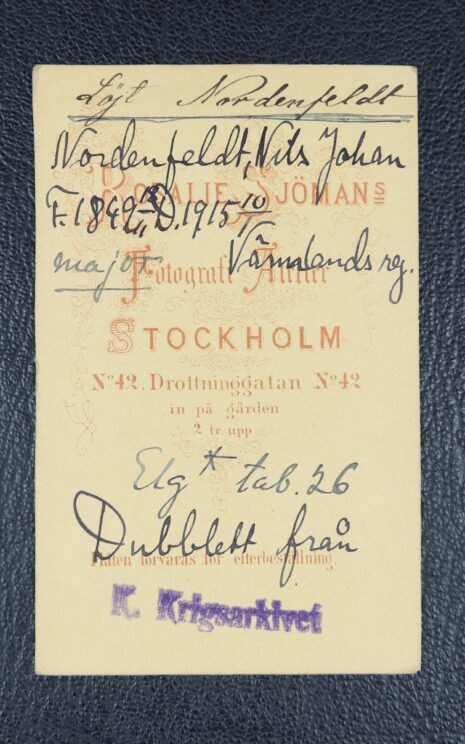 Löjt Nordenfeldt
Nordenfeldt, Nils Johan
ROSALIE SJÖMANS
F. 1849 D. 1915 10/1
major Värmlands reg.
Fotografi Atelier
STOCKHOLM
No 42. Drottninggatan No 42
in på gården
2 tr. upp
Elg * tab. 26
Dubblett från
Plåten förvaras för efterbeställning
K. Krigsarkivet